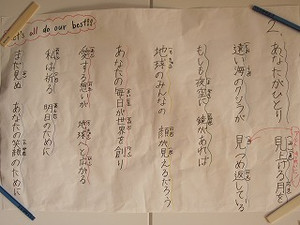 2.
あなたがひとり 見上げる月を
遠い海のクジラが 見つめ返している
もしも夜空に 鏡があれば
地球のみんなの 顔が見えるだろう
あなたの毎日が世界を創り
愛する想いが 地球へと広がる
私は祈る 明日のために
まだ見ぬ あなたの笑顔のために
Let's all do our best!!